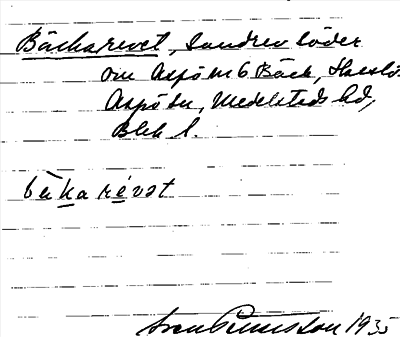 Bäckarevet, Sandrev söder
om Aspö nr 6 Bäck, Hasslö,
Aspö sn, Medelsteds hd,
Blek l.
bäkarévət
Sven Gunnarsson 1935